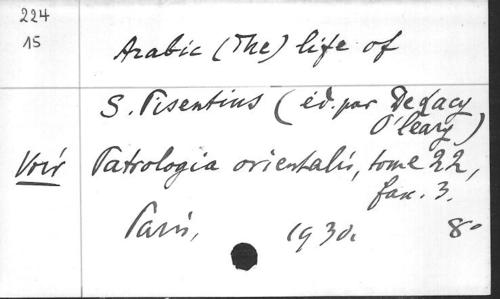 224
15
Arabic (The) life of
S. Pisentius (éd. par De Lacy
O'Leary)
Voir Patrologia orientalis, tome 22,
fasc. 3.
Paris, 1930. 8º